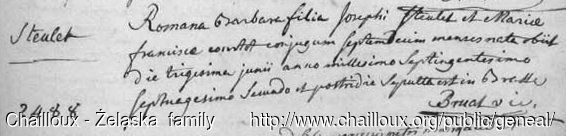 Romana Barbara filia Josephi Steulet et Mariæ
Steulet
franciscæ courtot conjugum septemdecim menses nata obiit
die trigesima junii anno millesimo septingentesimo
septuagesimo secundo et postridie sepulta est in
2488
Bruat vic.
Chailloux - Żelaska family http://www.chailloux.org/public/geneal/